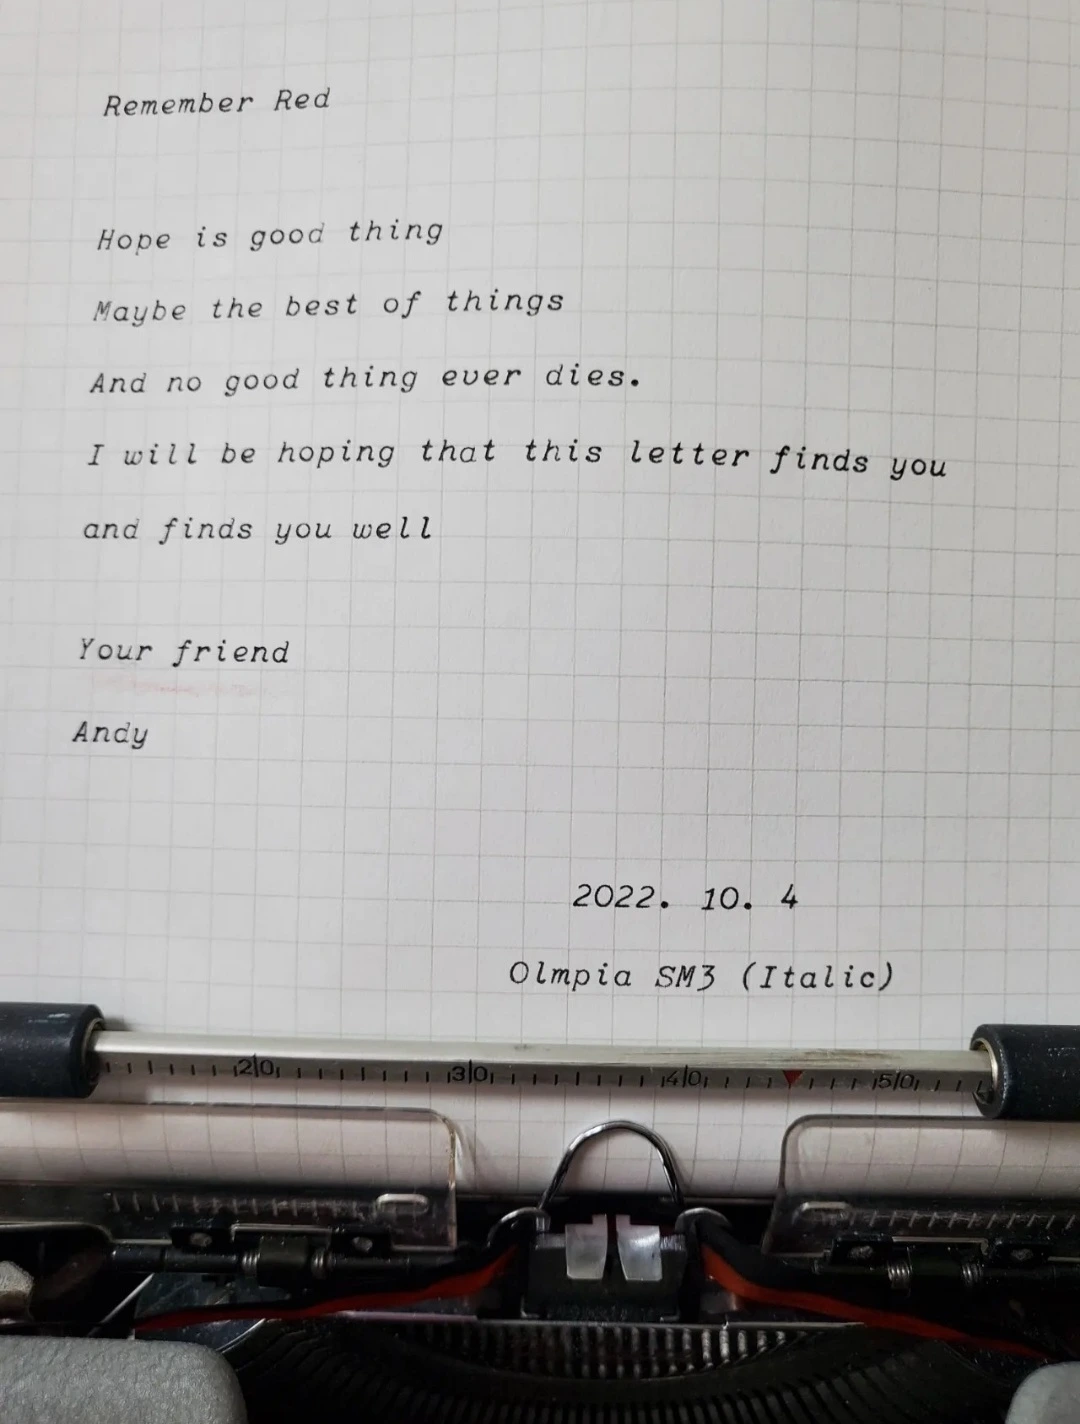 Remember Red
Hope is good thing
Maybe the best of things
And no good thing ever dies.
I will be hoping that this letter finds you
and finds you well
Your friend
Andy
2022. 10. 4
Olmpia SM3 (Italic)
20 30 40 50